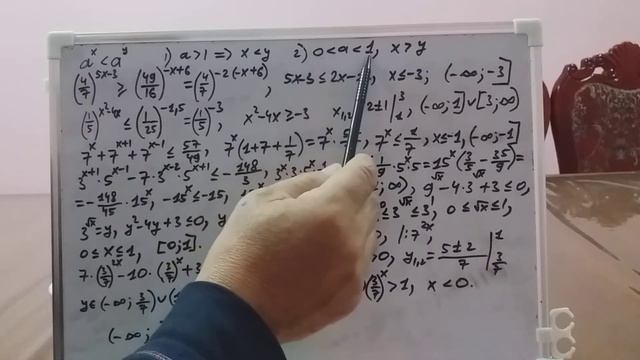 a^x < a^y   1) a>1 => x<y   2) 0<a<1, x>y
(4/7)^(5x-3) ≥ (49/16)^(-x+6) = (4/7)^(-2(-x+6)), 5x-3 ≤ 2x- , x≤-3; (-∞;-3]
(1/5)^(x²-4x) ≤ (1/25)^(-1,5) = (1/5)^(-3), x²-4x ≥ -3 x₁,₂ 2±1 | 3 1, (-∞;1]∪[3;∞)
7^x + 7^(x+1) + 7^(x-1) ≤ 57/49, 7^x(1+7+1/7) = 7^x · 5 , 7^x ≤ 1/7, x≤-1, (-∞;-1]
3^(x+1) · 5^(x-1) - 7·3^(x-2) · 5^(x+1) ≤ -148/3, 3^x·3·5^x 1/9 · 5^x·5 = 15^x(3/5 - 35/9) =
= -148/45 · 15^x, -15^x ≤ -15, ;∞), 9 - 4·3 + 3 ≤ 0,
3^√x = y, y²-4y+3 ≤ 0, ≤ 3^√x ≤ 3, 0 ≤ √x ≤ 1,
0 ≤ x ≤ 1, [0;1]. , |:7^2x
7·(3/7)^2x - 10·(3/7)^x + 3 >0, y₁,₂ = 5±2/7 | 1 3/7
y∈(-∞; 3/7)∪( (3/7)^x > 1, x < 0.
(-∞;